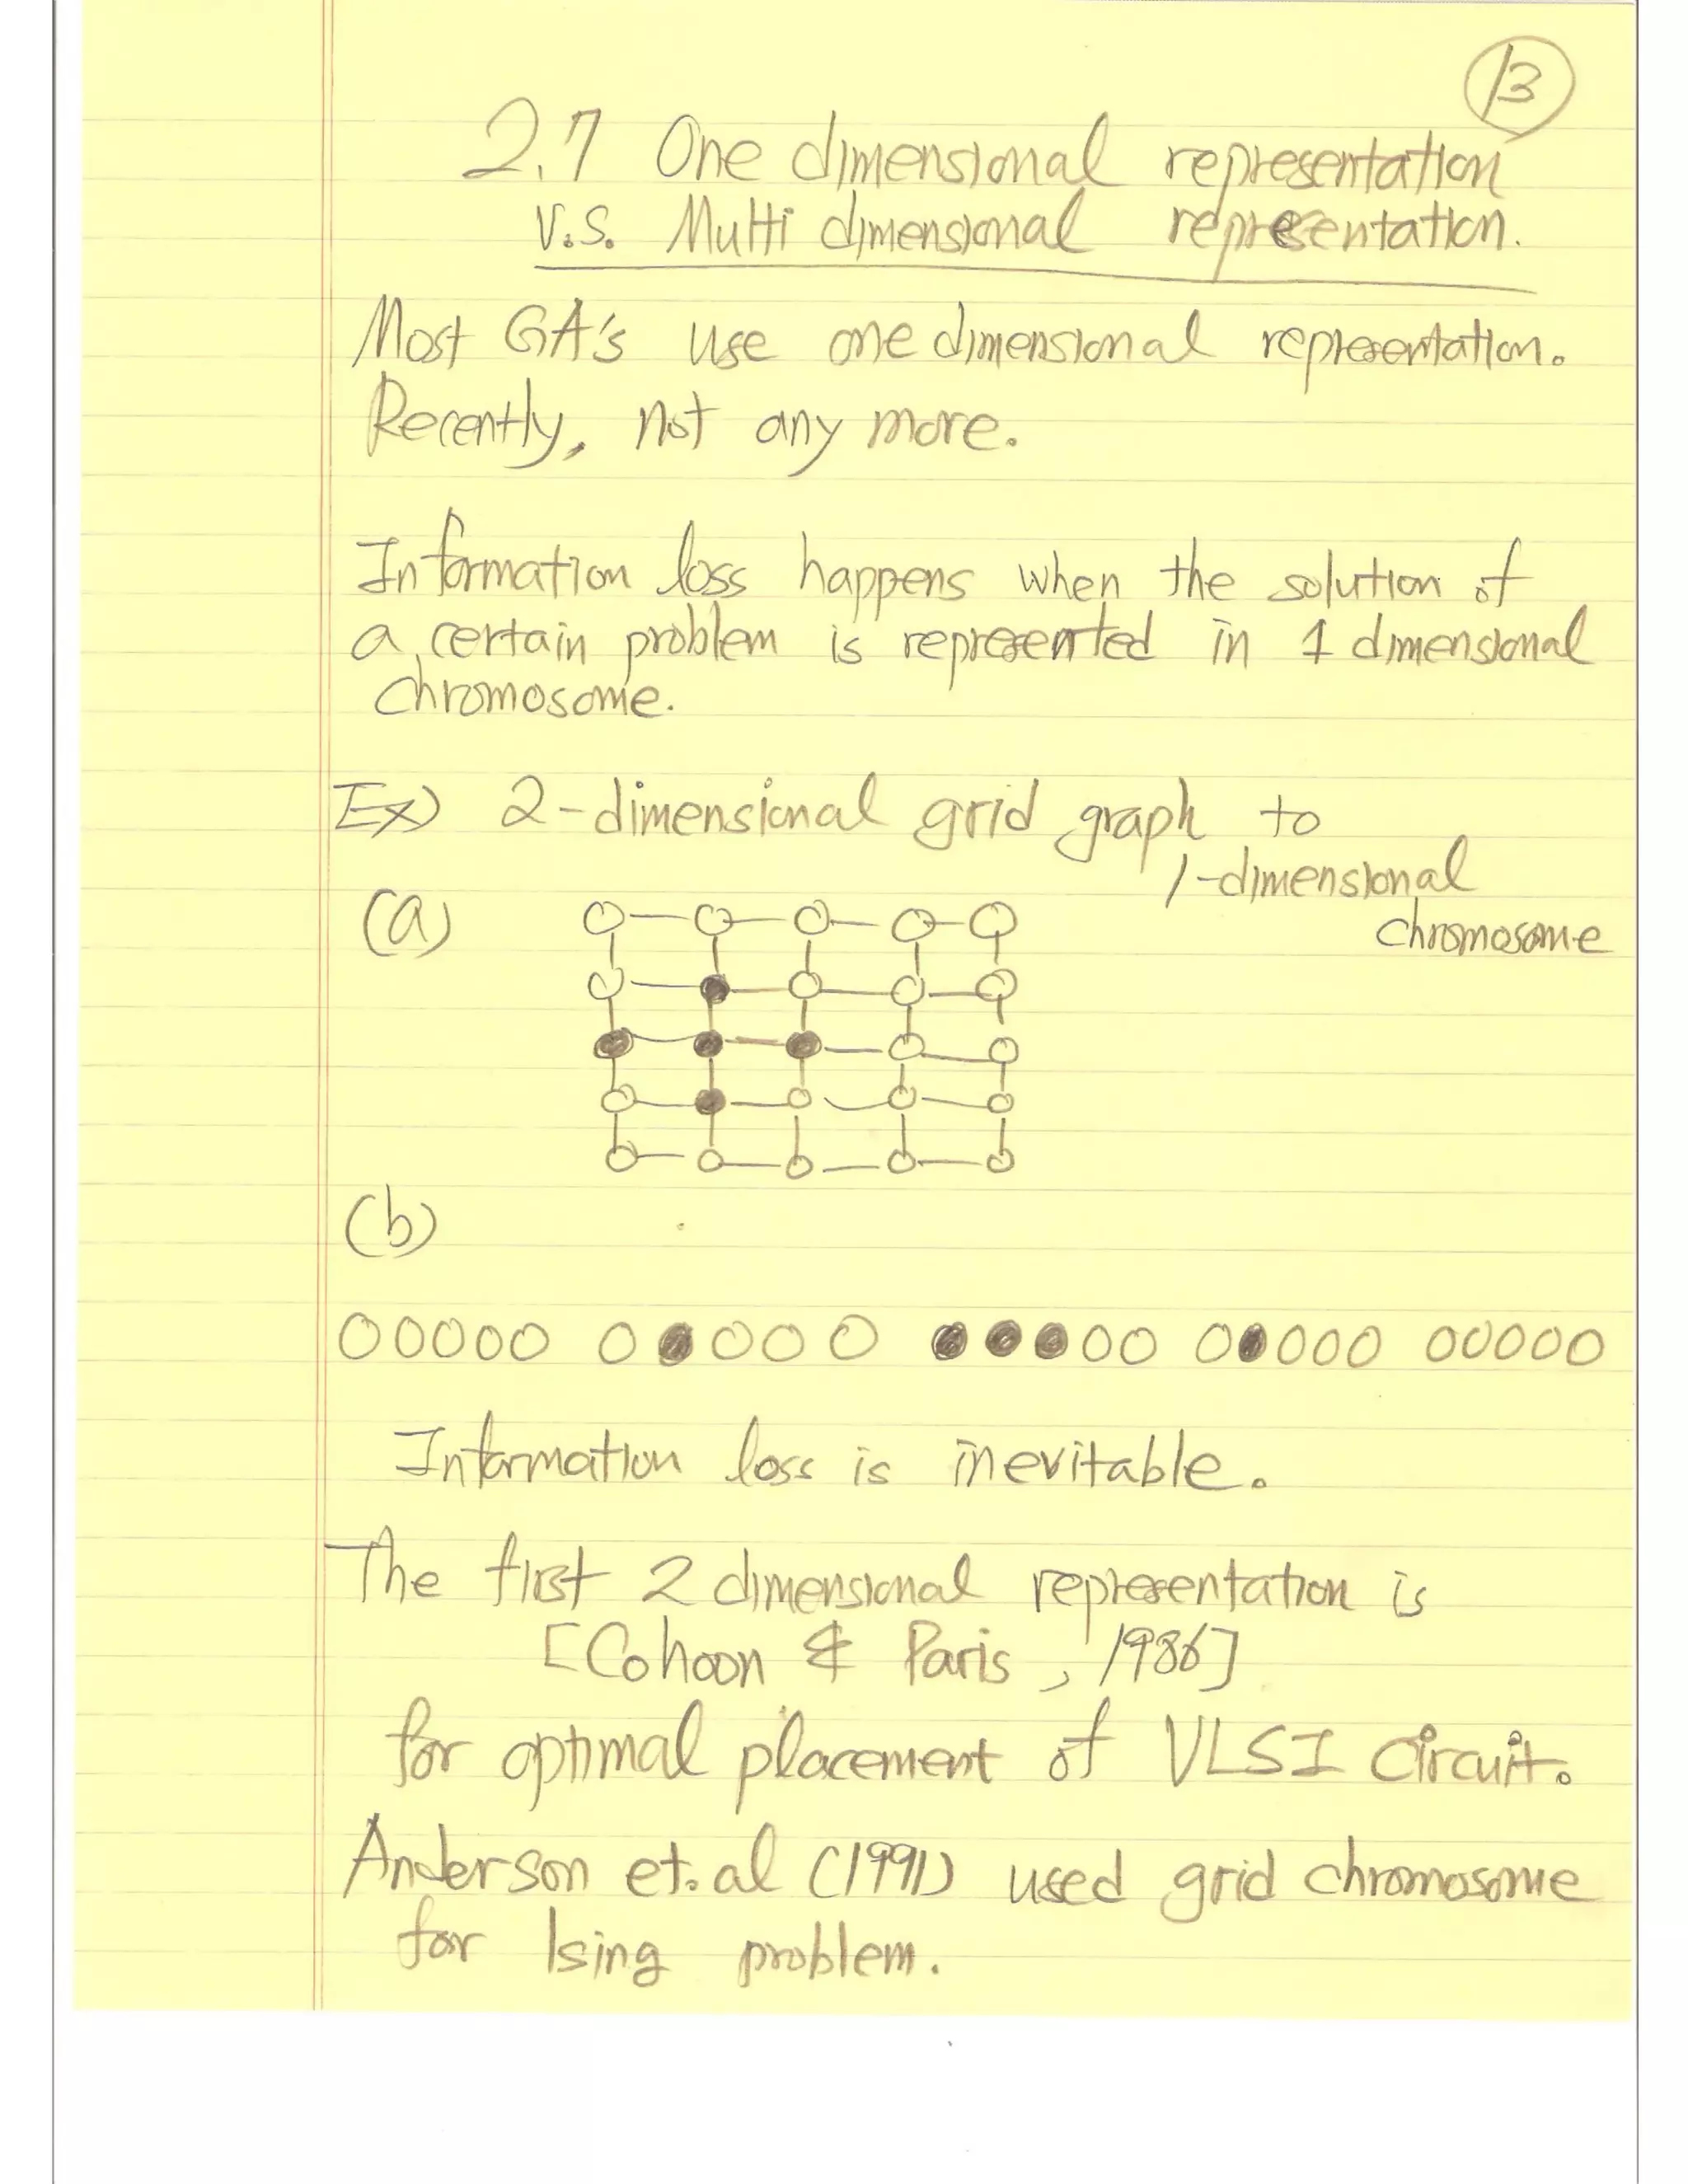 13
2.7 One dimensional representation
V.S. Multi dimensional representation.
Most GA's use one dimensional representation.
Recently, not any more.
Information loss happens when the solution of
a certain problem is represented in 1 dimensional
chromosome.
Ex) 2-dimensional grid graph to
1-dimensional
chromosome
(a)
(b)
Information loss is inevitable.
The first 2 dimensional representation is
[Cohoon & Paris, 1986]
for optimal placement of VLSI circuit.
Anderson et.al (1991) used grid chromosome
for Ising problem.